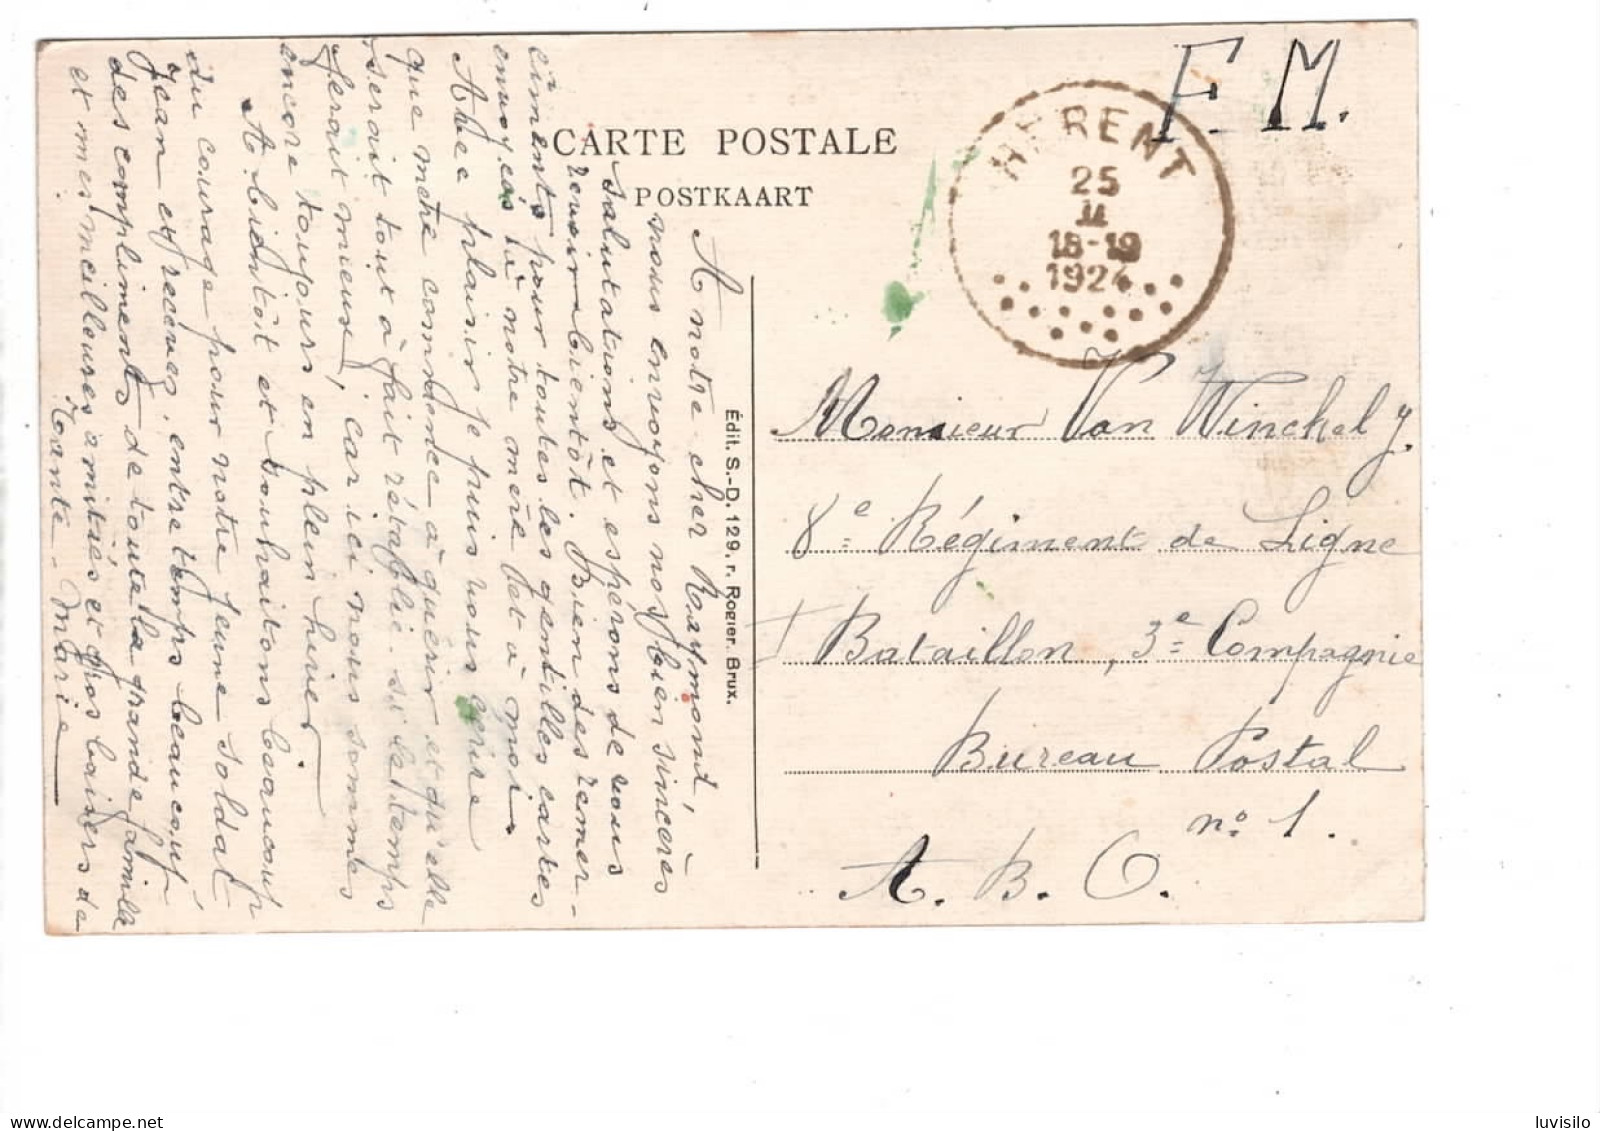 CARTE POSTALE
POSTKAART
F. M.
HERENT
25
II
18-19
1924
Monsieur Van Winckel J.
8e Régiment de Ligne
I Bataillon, 3e Compagnie
Bureau Postal
no 1.
A. B. O.
Édit. S.-D. 129, r. Rogier. Brux.
A notre cher Raymond,
nous envoyons nos bien sincères
salutations et espérons de vous
revoir bientôt. Bien des remer-
ciments pour toutes les gentilles cartes
envoyés à notre mère et à moi
Avec plaisir je puis vous écrire
que mère commence à guérir et qu'elle
serait tout à fait rétablie si le temps
ferait mieux, car ici nous sommes
encore toujours en plein hiver
A bientôt et souhaitons beaucoup
du courage pour notre jeune soldat
Jean et recevez, entre temps beaucoup
des compliments de toute la grande famille
et mes meilleures amitiés et gros baisers de
Tante - Marie
luvisilo